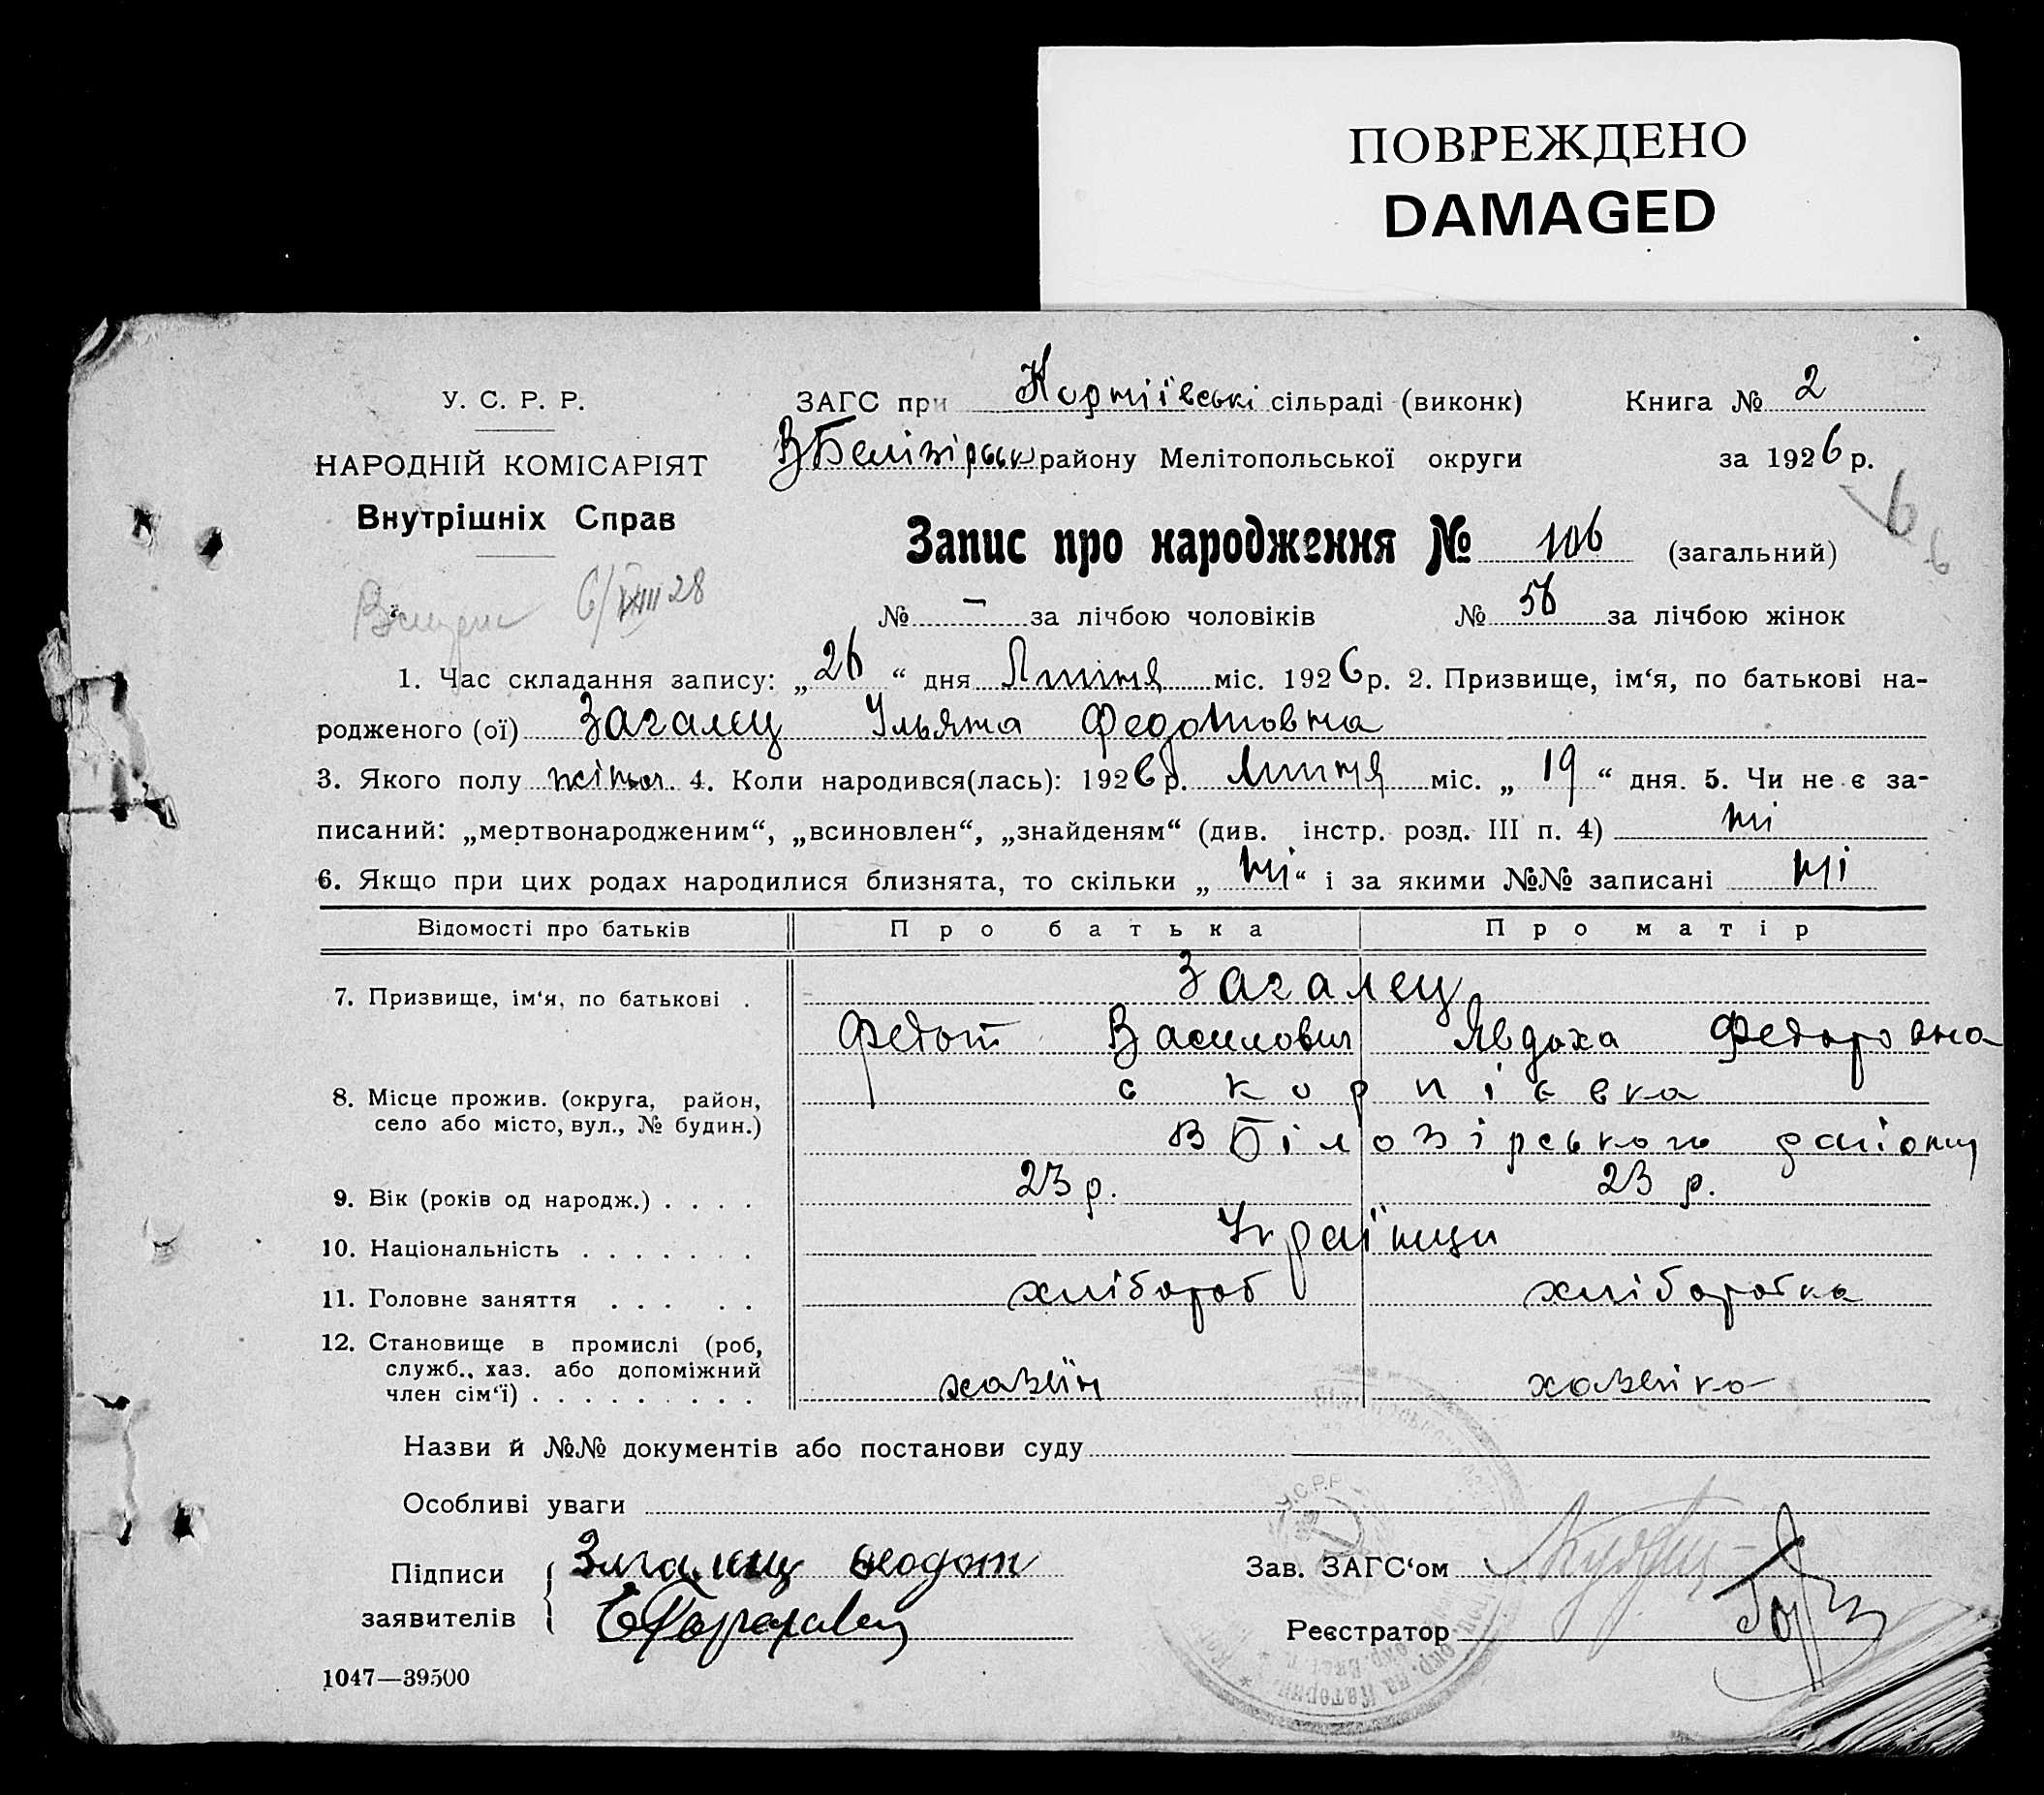 ПОВРЕЖДЕНО
DAMAGED
У. С. Р. Р.
НАРОДНІЙ КОМІСАРІЯТ
Внутрішніх Справ
ЗАГС при Корніївські сільраді (виконк)
Книга № 2
ВБелізірськ району Мелітопольської округи
за 1926 р.
6
6
Запис про народження № 106 (загальний)
6/VIII 28
№ – за лічбою чоловіків № 56 за лічбою жінок
1. Час складання запису: „26“ дня Липня міс. 1926 р. 2. Призвище, ім‘я, по батькові на-
родженого (ої) Загалец Ульяна Федотовна
3. Якого полу жіноч. 4. Коли народився(лась): 1926 р. Липня міс. „19“ дня. 5. Чи не є за-
писаний: „мертвонародженим“, „всиновлен“, „знайденям“ (див. інстр. розд. III п. 4) ні
6. Якщо при цих родах народилися близнята, то скільки „ні“ і за якими №№ записані ні
Відомості про батьків Про батька Про матір
7. Призвище, ім‘я, по батькові . Загалец
Федот Василович Явдоха Федоровна
8. Місце прожив. (округа, район, село або місто, вул., № будин.) с корпієвка
ВБілозірського району
9. Вік (років од народж.) . . . . 23 р. 23 р.
10. Національність . . . . . . . Українци
11. Головне заняття . . . . . хлібороб хліборобка
12. Становище в промислі (роб,
служб., хаз. або допоміжний
член сім‘ї) . . . . . . . . . хазяїн хазяйка
Назви й №№ документів або постанови суду
Особливі уваги
У.С.Р.Р.
Підписи
заявителів
Загалец Федот
Зав. ЗАГС‘ом
Реєстратор
1047—39500